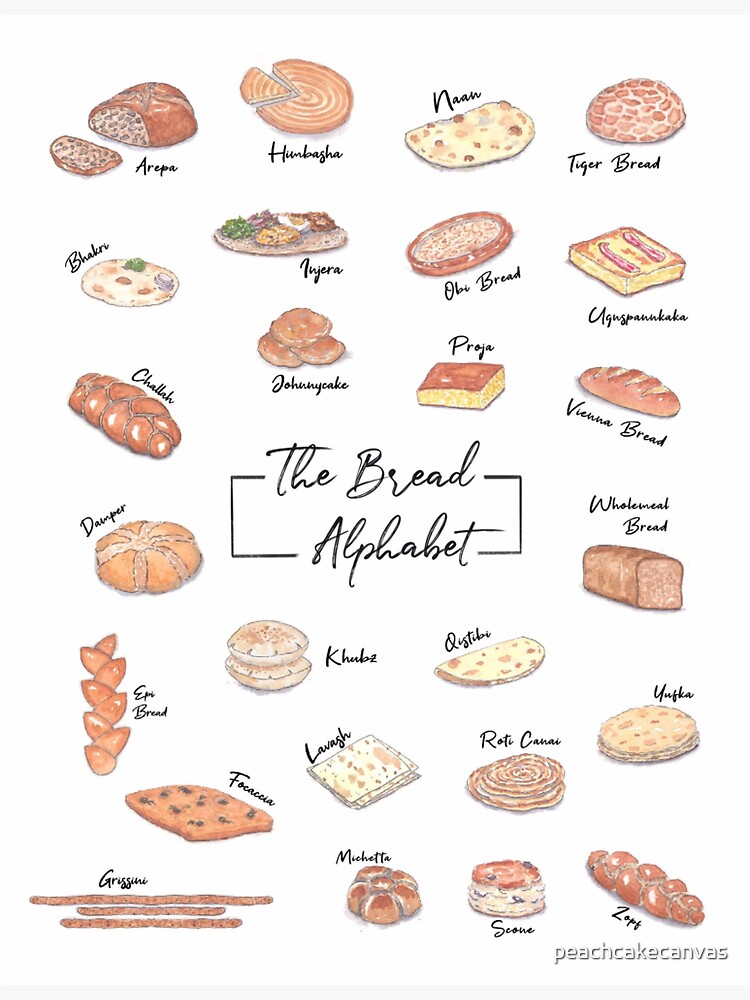 Arepa
Himbasha
Naan
Tiger Bread
Bhakri
Injera
Obi Bread
Ugnspannkaka
Challah
Johnnycake
Proja
Vienna Bread
The Bread
Alphabet
Damper
Wholemeal
Bread
Epi
Bread
Khubz
Qistibi
Yufka
Focaccia
Lavash
Roti Canai
Grissini
Michetta
Scone
Zopf
peachcakecanvas